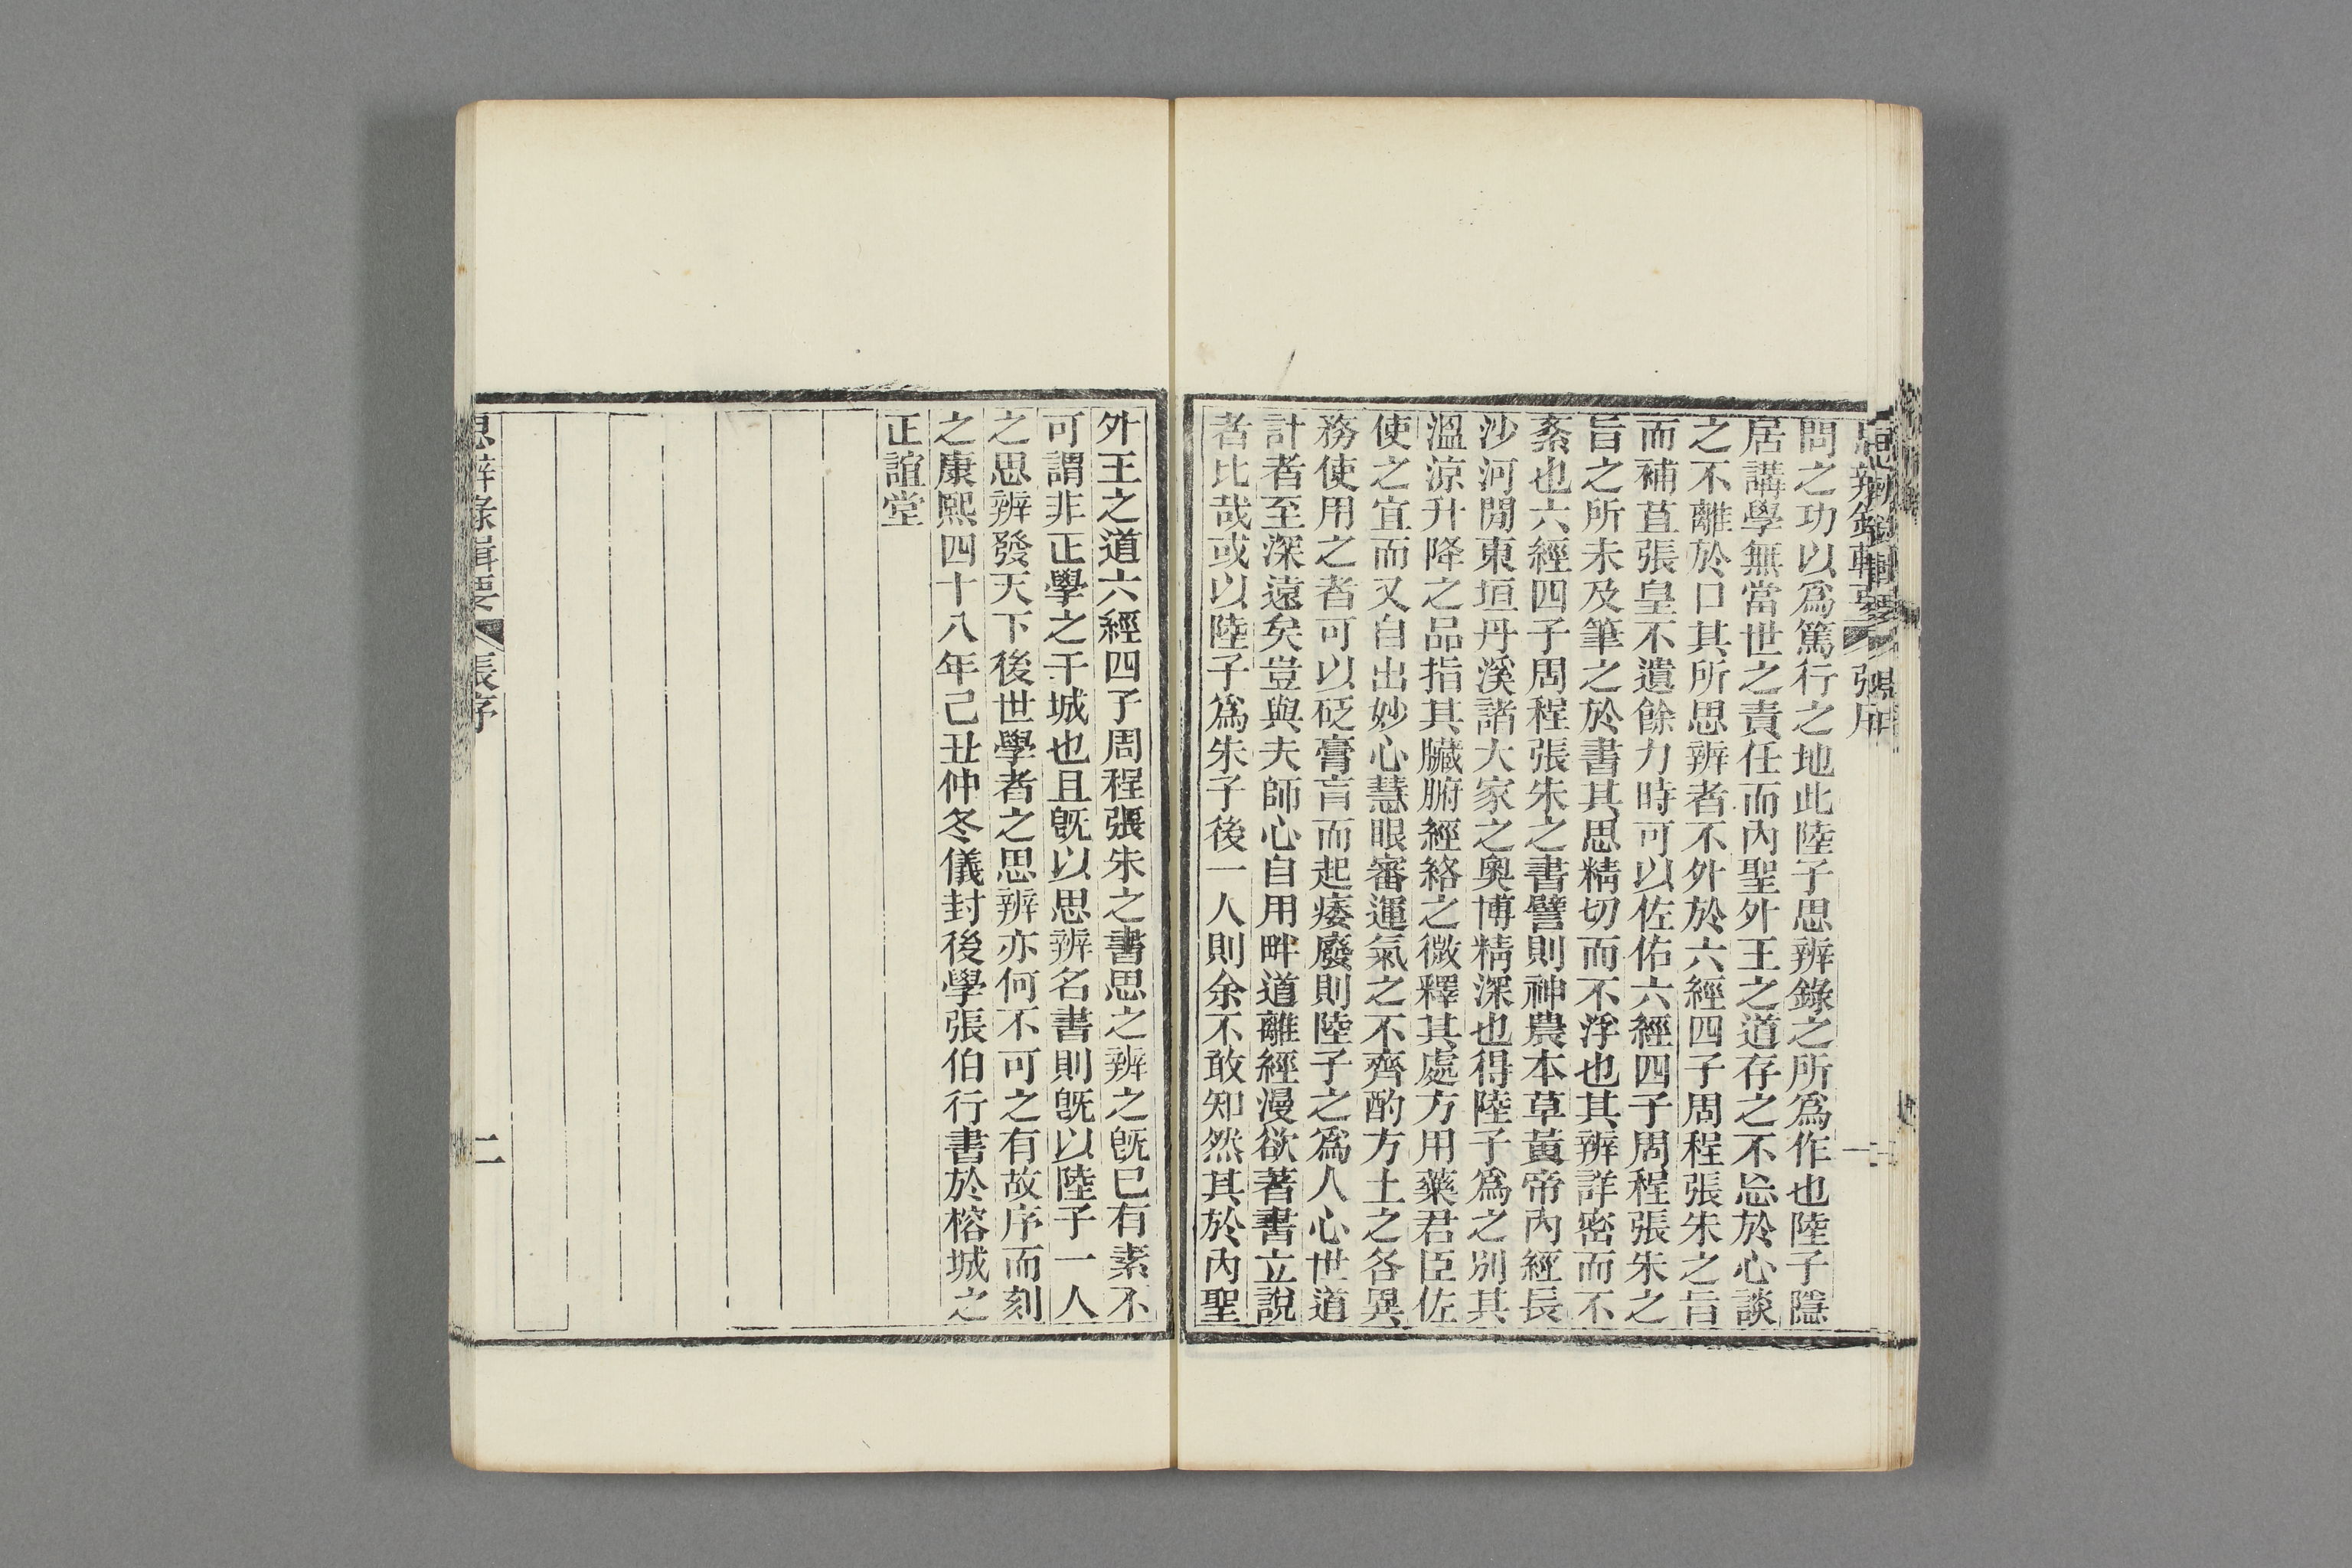 問之功以爲篤行之地此陸子思辨錄之所爲作也陸子隱
居講學無當世之責任而內聖外王之道存之不忘於心談
之不離於口其所思辨者不外於六經四子周程張朱之旨
而補苴張皇不遺餘力時可以佐佑六經四子周程張朱之
旨之所未及筆之於書其思精切而不浮也其辨詳密而不
紊也六經四子周程張朱之書譬則神農本草黃帝內經長
沙河閒東垣丹溪諸大家之奧博精深也得陸子爲之別其
溫涼升降之品指其臟腑經絡之微釋其處方用藥君臣佐
使之宜而又自出妙心慧眼審運氣之不齊酌方土之各異
務使用之者可以砭膏肓而起痿廢則陸子之爲人心世道
計者至深遠矣豈與夫師心自用畔道離經漫欲著書立說
者比哉或以陸子爲朱子後一人則余不敢知然其於內聖
外王之道六經四子周程張朱之書思之辨之旣已有素不
可謂非正學之干城也且旣以思辨名書則旣以陸子一人
之思辨發天下後世學者之思辨亦何不可之有故序而刻
之康熙四十八年己丑仲冬儀封後學張伯行書於榕城之
正誼堂
思辨錄輯要 張序
二